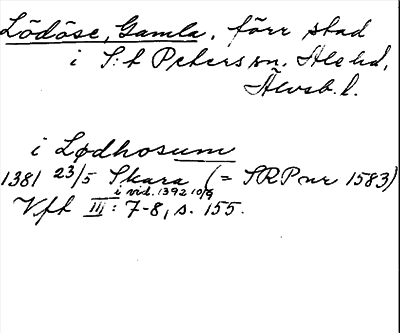 Lödöse, Gamla, förr stad
i S:t Peters sn. Ale hd,
Älvsb. l.
i Lødhosum
1381 23/5 Skara (= SRP nr 1583)
i vid. 1392 10/9
Vft III: 7-8, s. 155.